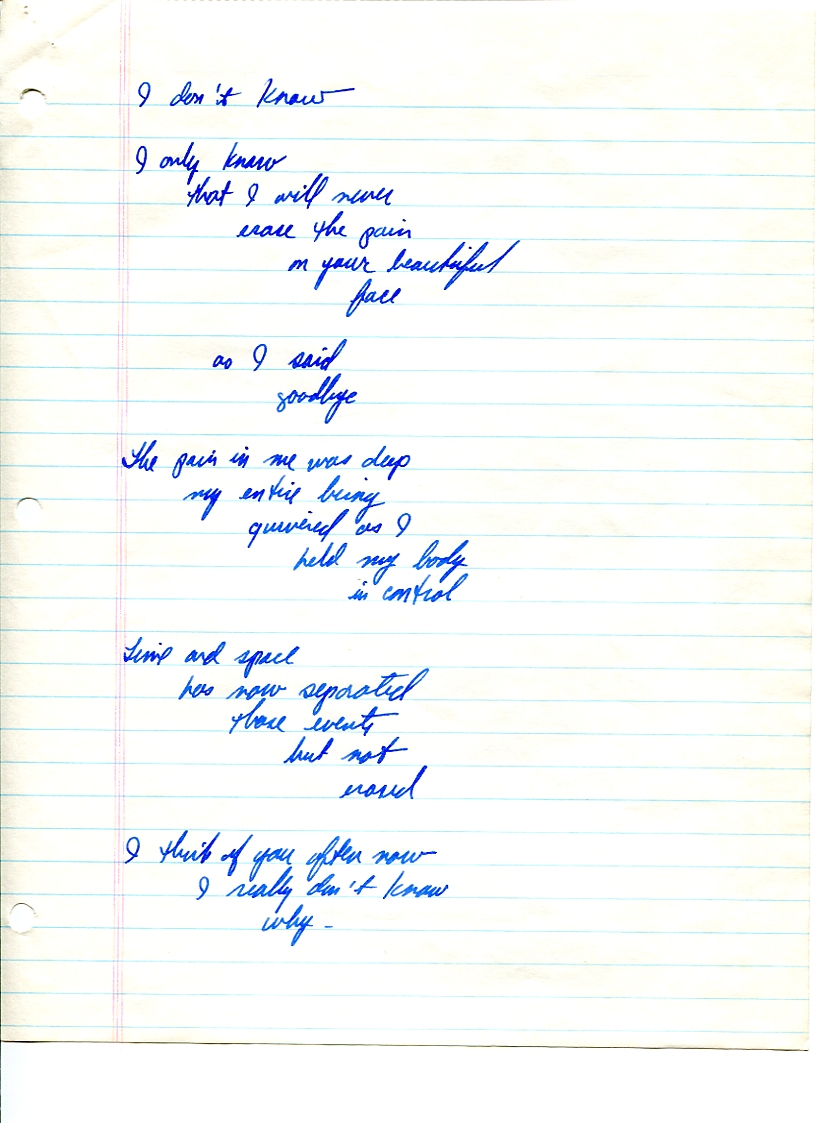 I don't know
I only know
that I will never
erase the pain
on your beautiful
face
as I said
goodbye
The pain in me was deep
my entire being
quivered as I
held my body
in control
Time and space
has now separated
those events
but not
erased
I think of you often now
I really don't know
why -